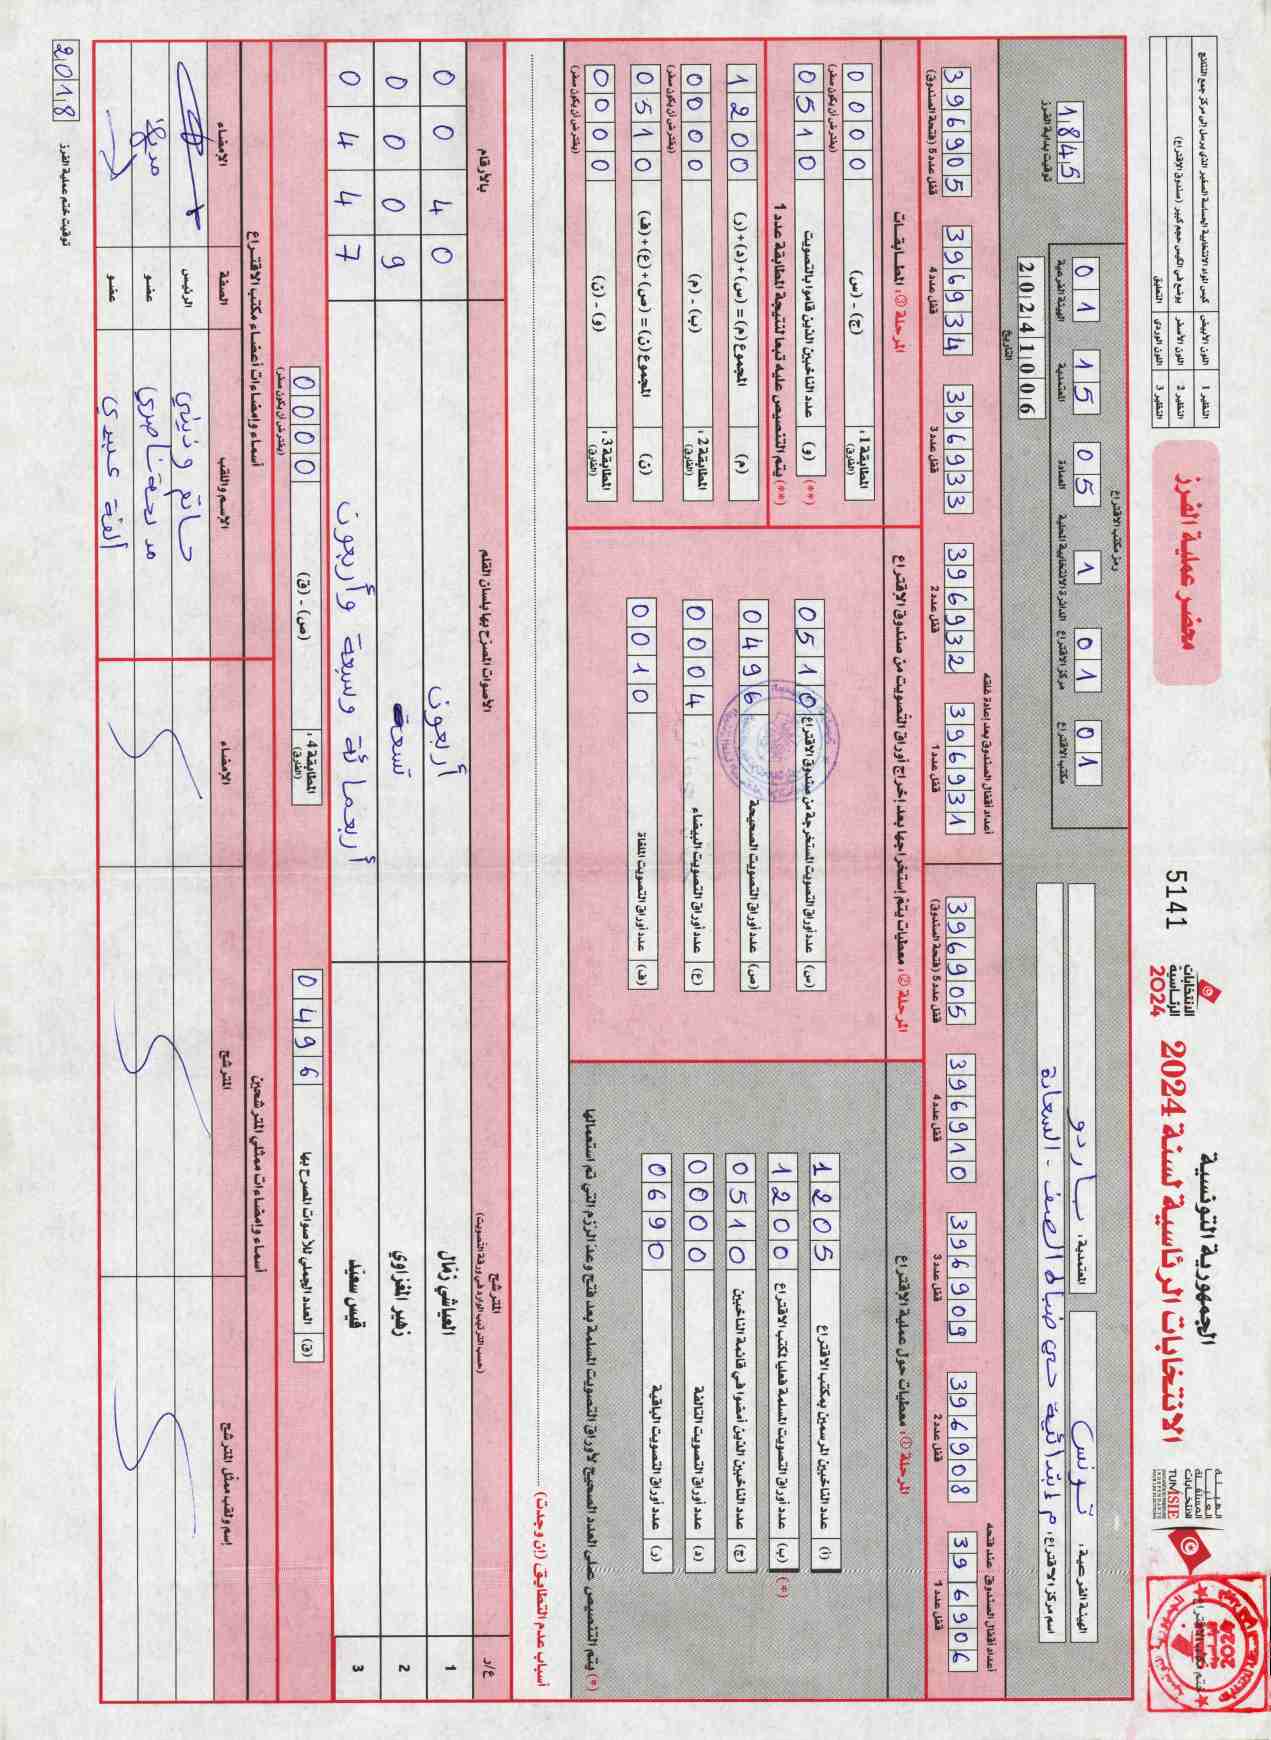 الجمهورية التونسية
الانتخابات الرئاسية لسنة 2024
الانتخابات
الرئاسية
2024
5141
محضر عملية الفرز
النظير 1 اللون الأبيض كيس المواد الانتخابية الحساسة الصغير الذي يرسل إلى مركز جمع النتائج
النظير 2 اللون الأصفر يوضع في الكيس حجم كبير (صندوق الاقتراع)
النظير 3 اللون الوردي التعليق
الهيئة الفرعية: تونس
المعتمدية: باردو
اسم مركز الاقتراع: م إبتدائية حي ضباط الصف - السعادة
رمز مكتب الاقتراع
01 الهيئة الفرعية
15 المعتمدية
05 العمادة
1 الدائرة الانتخابية المحلية
01 مركز الاقتراع
01 مكتب الاقتراع
20241006
التاريخ
1845
توقيت بداية الفرز
أعداد أقفال الصندوق عند فتحه
396906 قفل عدد 1
396908 قفل عدد 2
396909 قفل عدد 3
396910 قفل عدد 4
396905 قفل عدد 5 (فتحة الصندوق)
أعداد أقفال الصندوق بعد إعادة غلقه
396931 قفل عدد 1
396932 قفل عدد 2
396933 قفل عدد 3
396934 قفل عدد 4
396905 قفل عدد 5 (فتحة الصندوق)
المرحلة ①: معطيات حول عملية الاقتراع
(أ) عدد الناخبين المرسمين بمكتب الاقتراع 1205
(*) (ب) عدد أوراق التصويت المسلمة فعليا لمكتب الاقتراع 1200
(ج) عدد الناخبين الذين أمضوا في قائمة الناخبين 0510
(د) عدد أوراق التصويت التالفة 0000
(ر) عدد أوراق التصويت الباقية 0690
(*) يتم التنصيص على العدد الصحيح لأوراق التصويت المسلمة بعد فتح وعد الرزم التي تم استعمالها
المرحلة ②: معطيات يتم إستخراجها بعد إخراج أوراق التصويت من صندوق الاقتراع
(س) عدد أوراق التصويت المستخرجة من صندوق الاقتراع 0510
(ص) عدد أوراق التصويت الصحيحة 0496
(ع) عدد أوراق التصويت البيضاء 0004
(ف) عدد أوراق التصويت الملغاة 0010
المرحلة ③: المطابقات
المطابقة 1: (الفارق) (ج) - (س) 0000
(يفترض أن يكون صفر)
(**) (و) عدد الناخبين الذين قاموا بالتصويت 0510
(**) يتم التنصيص عليه تبعا لنتيجة المطابقة عدد 1
(م) المجموع (م) = (س)+(د)+(ر) 1200
المطابقة 2: (الفارق) (ب) - (م) 0000
(يفترض أن يكون صفر)
(ن) المجموع (ن) = (ص)+(ع)+(ف) 0510
المطابقة 3: (الفارق) (و) - (ن) 0000
(يفترض أن يكون صفر)
أسباب عدم التطابق (إن وجدت)
ع/ر المترشح الأصوات المصرّح بها بلسان القلم بالأرقام
(حسب الترتيب الوارد في ورقة التصويت)
1 العياشي زمّال أربعون 0040
2 زهير المغزاوي تسعة 0009
3 قيس سعيّد أربعمائة وسبعة وأربعون 0447
(ق) العدد الجملي للأصوات المصرح بها 0496
المطابقة 4: (الفارق) (ص) - (ق) 0000
(يفترض أن يكون صفر)
أسماء وإمضاءات ممثلي المترشحين
إسم ولقب ممثل المترشح المترشح الإمضاء
أسماء وإمضاءات أعضاء مكتب الاقتراع
الإسم واللقب الصفة الإمضاء
الرئيس
عضو
عضو
2018
توقيت ختم عملية الفرز